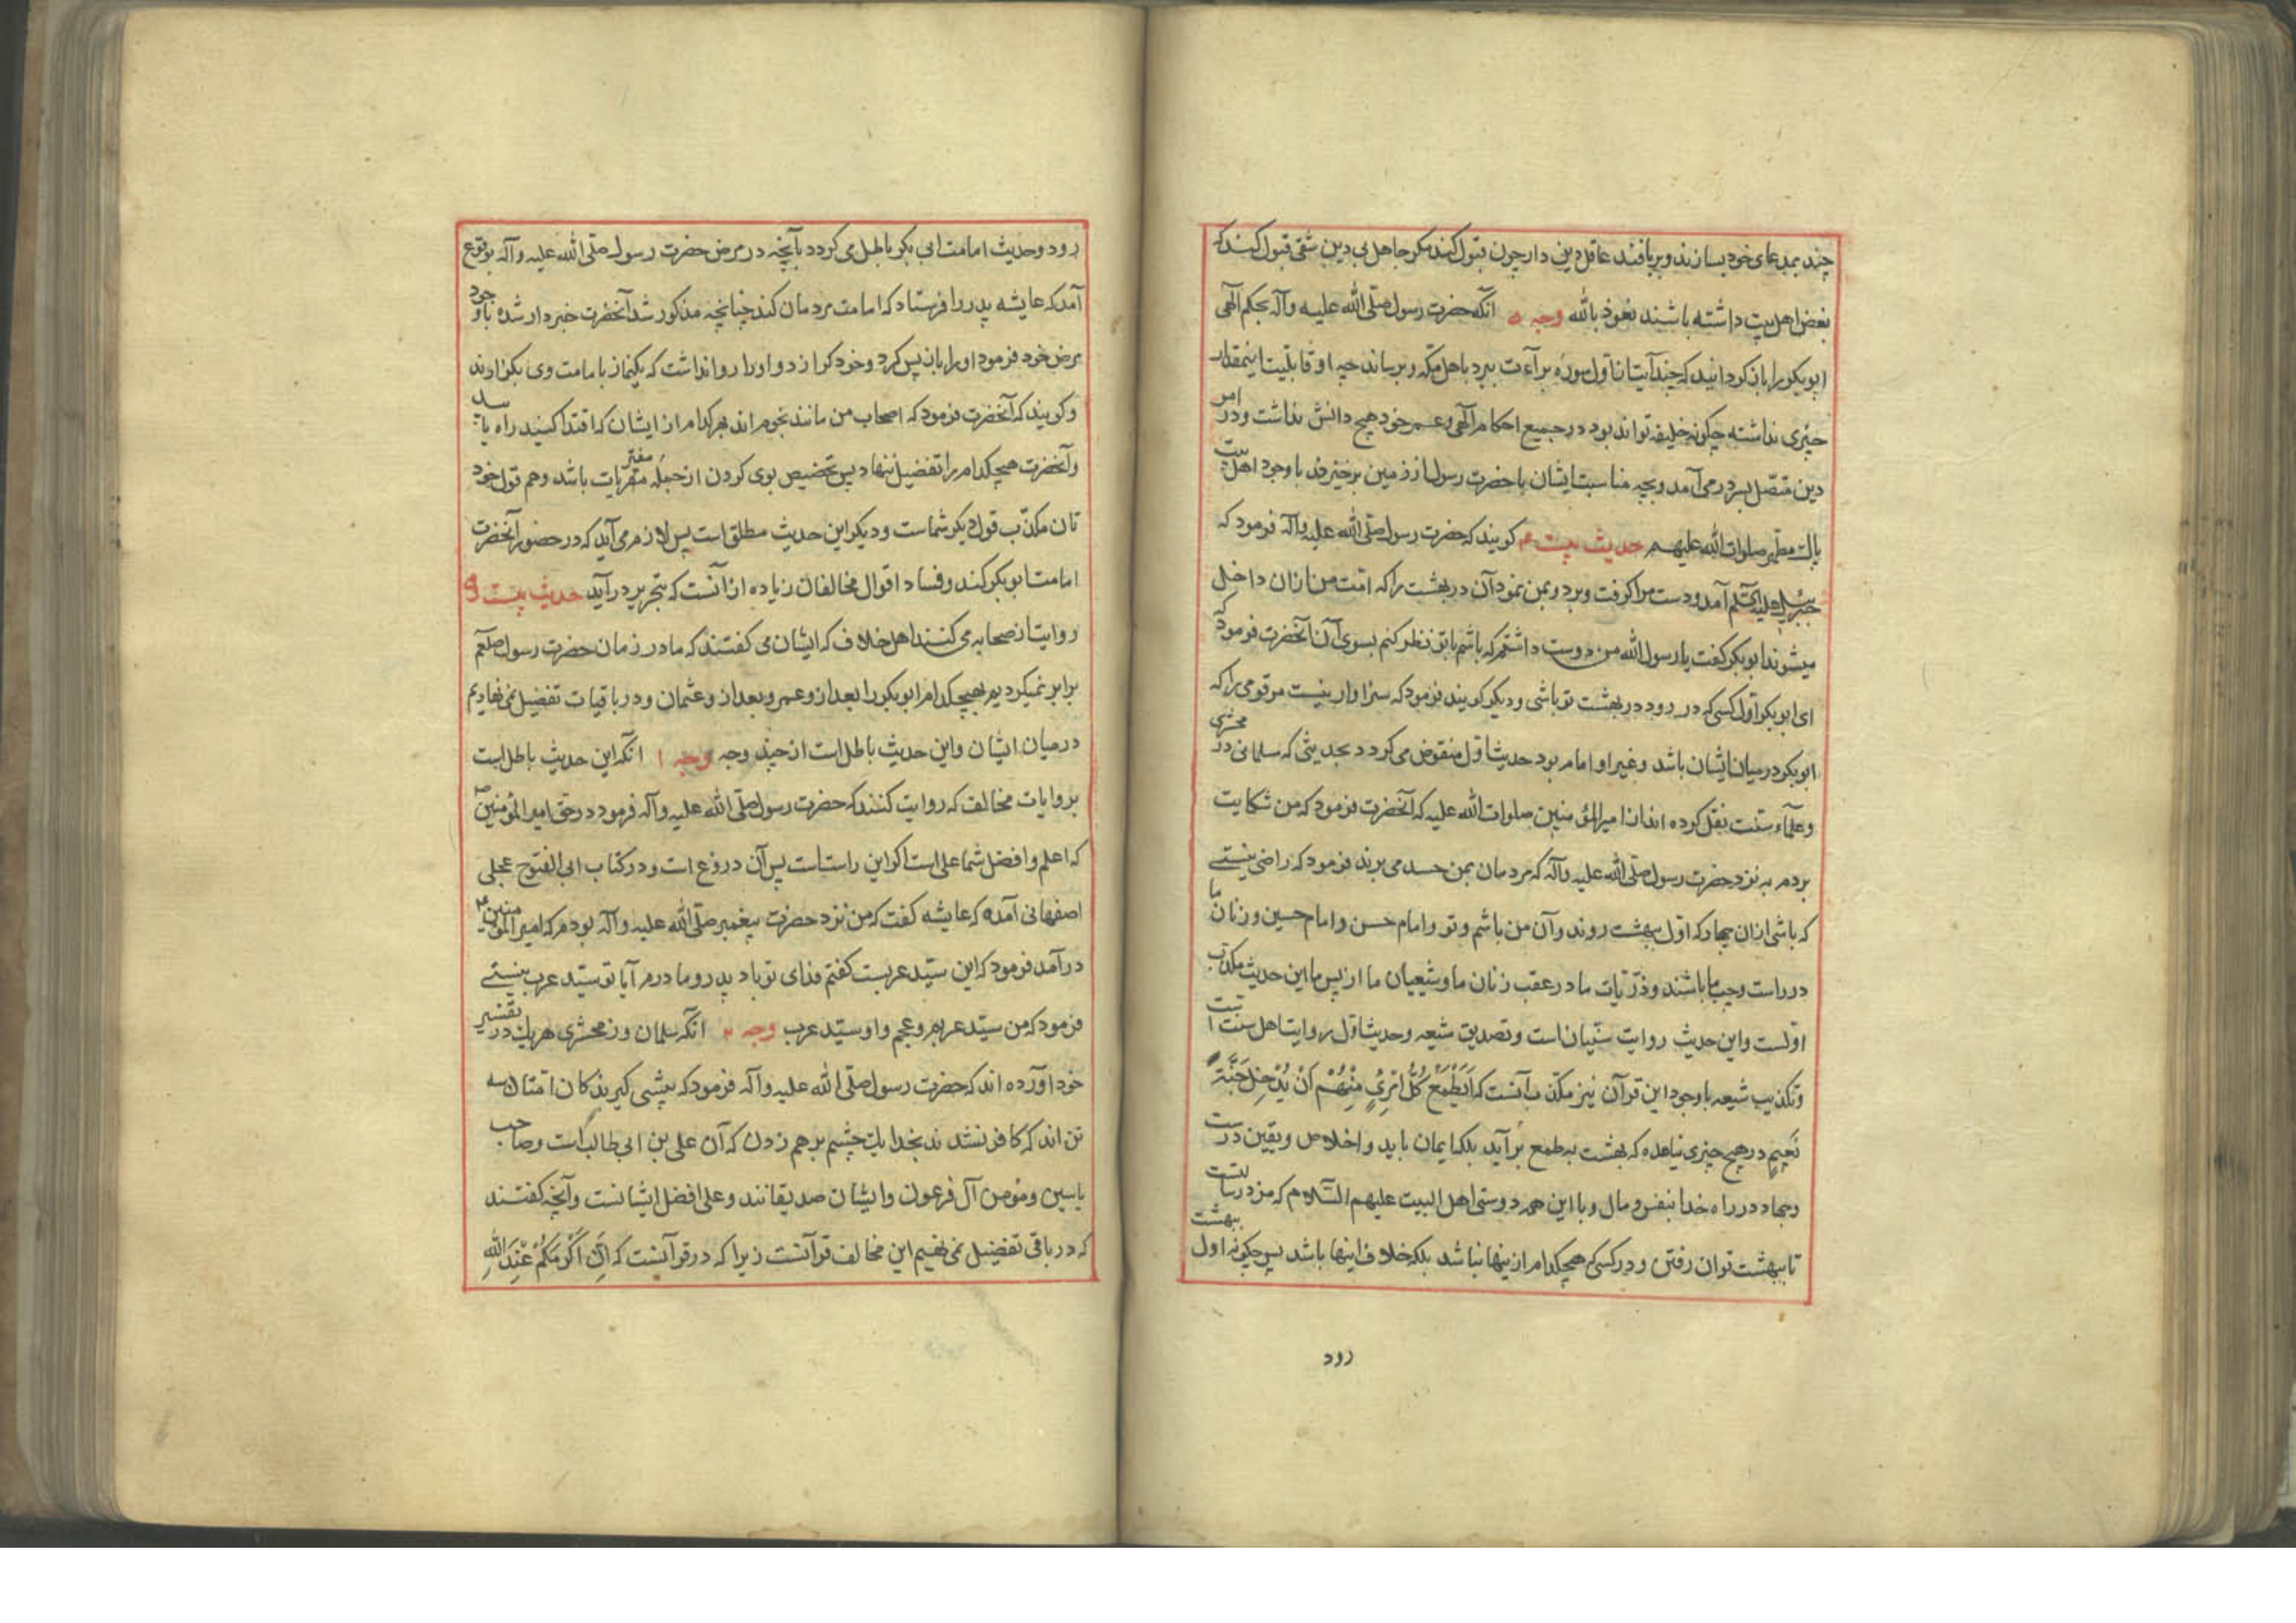 چند بمدعای خود بسازند و بریافتند عاقل دین دار چون قبول کند مکر جاهل بی دین شقی قبول کیند که
بغض اهل بیت داشته باشند نعوذ بالله وجه ۵ انکه حضرت رسول صلّی الله علیه وآله بحکم الهی
ابو بکر را باز کردانید که چند آیت از اول سوره برآءت ببرد باهل مکه و برساند چه او قابلیت اینمقدار
چیزی نداشته چکونه خلیفه تواند بود در جمیع احکام الهی و عمر خود هیچ دانش نداشت و در امر
دین متصل بسر در می آمد و بچه مناسبت ایشان با حضرت رسول از زمین برخیزند با وجود اهل بیت
پاك مطهر صلوات الله علیهم حدیث بیست م کویند که حضرت رسول صلّی الله علیه وآله فرمود که
جبرئیل علیه السّلم آمد و دست مرا کرفت و برد و بمن نمود آن در بهشت را که امّت من از ان داخل
میشوند ابو بکر کفت یا رسول الله من دوست داشتم که باشم با تو نظر کنم بسوی آن آنحضرت فرمود که
ای ابو بکر اول کسی که در رود در بهشت تو باشی و دیکر کویند فرمود که سزاوار نیست مر قومی را که
ابو بکر در میان ایشان باشد و غیر او امام بود حدیث اول منقوض می کردد بحدیثی که سلمانی در محشری
و علمآء سنّت نقل کرده اند از امیر المؤمنین صلوات الله علیه که آنحضرت فرمود که من شکایت
بردم به نزد حضرت رسول صلّی الله علیه وآله که مردمان بمن حسد می برند فرمود که راضی نیستے
که باشی از ان چهار که اول ببهشت روند و آن من باشم و تو و امام حسن و امام حسین و زنان ما
در راست و چپ ما باشند و ذرّیات ما در عقب زنان ما و شیعیان ما از پس ما این حدیث مکذب
اولست و این حدیث روایت سنّیان است و تصدیق شیعه و حدیث اول روایت اهل سنت است
و تکذیب شیعه با وجود این قرآن نیز مکذب آنست که اَیَطْمَعُ کُلُّ امْرِئٍ مِنْهُمْ اَنْ یُدْخَلَ جَنَّةَ
نَعِیمٍ در هیچ چیزی نیامده که بهشت به طمع برآید بلکه ایمان باید و اخلاص و یقین درست
و جهاد در راه خدا بنفس و مال و با این همه دوستی اهل البیت علیهم السّلام که مزد رسالتست
تا ببهشت توان رفتن و در کسی که هیچکدام از ینها نباشد بلکه خلاف اینها باشد پس چکونه اول ببهشت
رود
رود و حدیث امامت ابی بکر باطل می کردد بآنچه در مرض حضرت رسول صلّی الله علیه وآله بوقوع
آمد که عایشه پدر را فرستاد که امامت مردمان کند چنانچه مذکور شد آنحضرت خبردار شده باوجود
مرض خود فرمود او را باز پس کرد و خود کوازد و او را روا نداشت که یکنماز با مامت وی بکزارند
و کویند که آنحضرت فرمود که اصحاب من مانند نجوم اند هر کدام از ایشان که اقتدا کنید راه یابید
و آنحضرت هیچکدام را تفضیل ننهاد پس تخصیص بوی کردن از جمله مفتریات باشد و هم قول خود
تان مکذّب قول دیکر شماست و دیکر این حدیث مطلق است پس لازم می آید که در حضور آنحضرت
امامت ابو بکر کند و فساد اقوال مخالفان زیاده از آنست که بتحریر در آید حدیث بیست و
روایت از صحابه می کنند اهل خلاف که ایشان می کفتند که ما در زمان حضرت رسول صلعم
برابر نمیکردیم بهیچکدام ابو بکر را بعد از و عمر و بعد از و عثمان و در باقیات تفضیل نمی نهادیم
درمیان ایشان و این حدیث باطل است از چند وجه وجه ۱ انکه این حدیث باطل است
بروایات مخالف که روایت کنند که حضرت رسول صلّی الله علیه وآله فرمود در حق امیر المؤمنین ص
که اعلم و افضل شما علی است اکر این راست است پس آن دروغ است و در کتاب ابی الفتوح عجلی
اصفهانی آمده که عایشه کفت که من نزد حضرت پیغمبر صلّی الله علیه وآله بودم که امیر المؤمنین ع
درآمد فرمود که این سیّد عربست کفتم فدای تو باد پدر و مادرم آیا تو سیّد عرب نیستے
فرمود که من سیّد عربم و عجم و او سیّد عرب وجه ۲ انکه سلمان و زمحشری هر یك در تفسیر
خود آورده اند که حضرت رسول صلّی الله علیه وآله فرمود که پیشی کیرندکان امتان سه
تن اند که کافر نشدند بخدا یك چشم برهم زدن که آن علی بن ابی طالب است و صاحب
یاسین و مؤمن آل فرعون و ایشان صدیقانند و علی افضل ایشانست و آنچه کفتند
که در باقی تفضیل نمی نهیم این مخالف قرآنست زیرا که در قرآنست که اِنَّ اَکْرَمَکُمْ عِنْدَ اللهِ